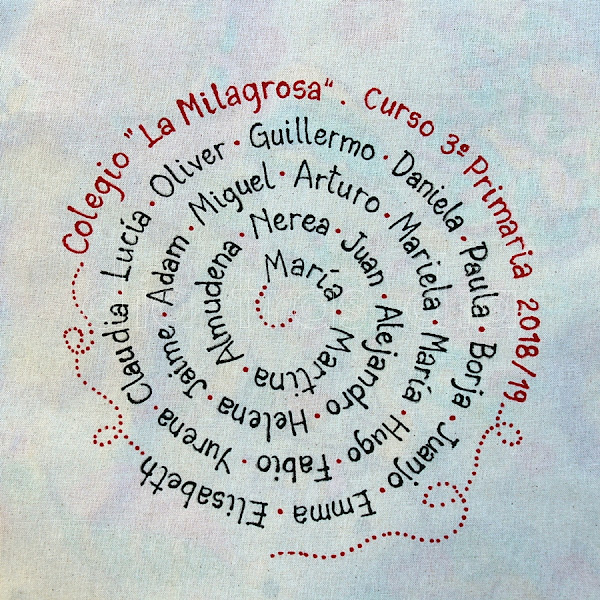 Colegio "La Milagrosa". Curso 3º Primaria 2018/19
María · Martina · Almudena · Nerea · Juan · Alejandro · Helena · Jaime · Adam · Miguel · Arturo · Mariela · María · Hugo · Fabio · Yurena · Claudia · Lucía · Oliver · Guillermo · Daniela · Paula · Borja · Juanjo · Emma · Elisabeth